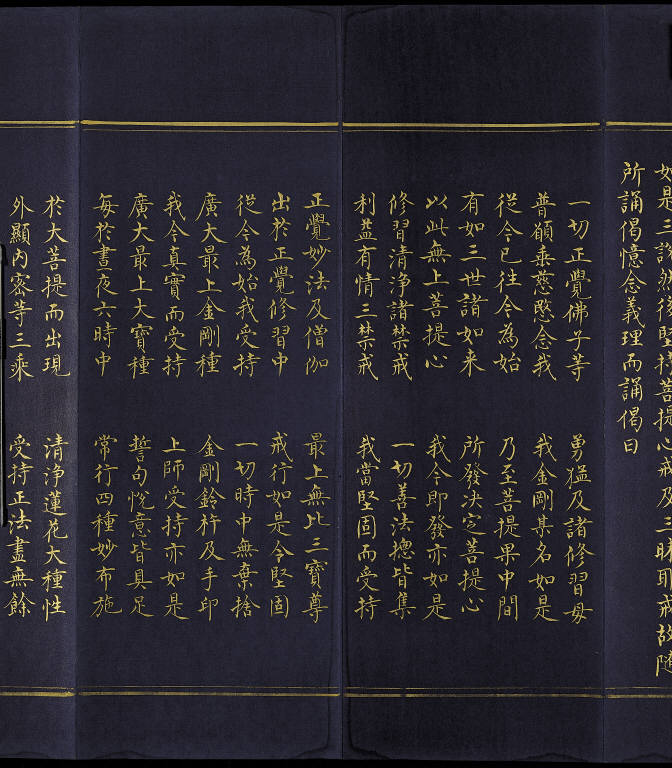 如是三說然後堅持菩提心戒及三昧耶戒故隨
所誦偈憶念義理而誦偈曰
一切正覺佛子等 勇猛及諸修習母
普願垂慈愍念我 我金剛某名如是
從今已往今為始 乃至菩提果中間
有如三世諸如来 所發決定菩提心
以此無上菩提心 我今即發亦如是
修習清浄諸禁戒 一切善法摠皆集
利益有情三禁戒 我當堅固而受持
正覺妙法及僧伽 最上無比三寶尊
出於正覺修習中 戒行如是令堅固
從今為始我受持 一切時中無棄捨
廣大最上金剛種 金剛鈴杵及手印
我今真實而受持 上師受持亦如是
廣大最上大寶種 誓句悅意皆具足
每於晝夜六時中 常行四種妙布施
於大菩提而出現 清浄蓮花大種性
外顯內密等三乘 受持正法盡無餘